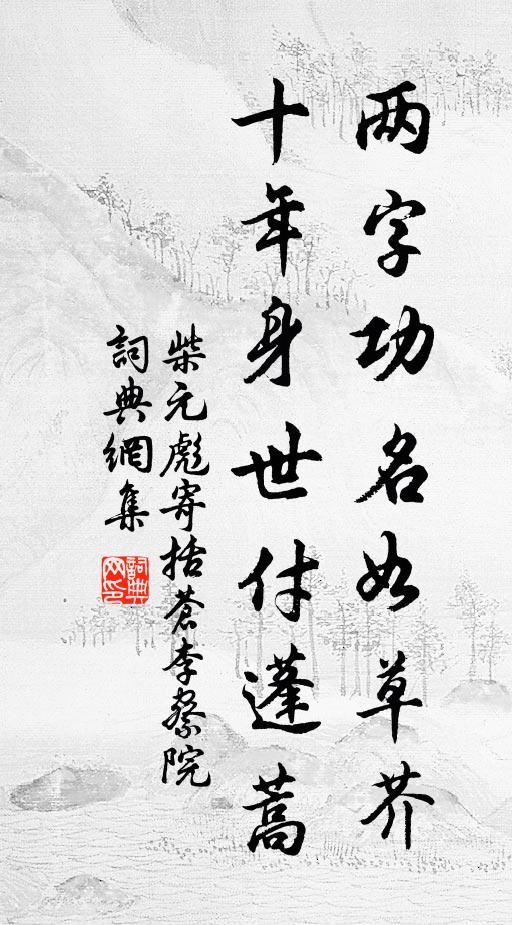 两字功名如草芥
十年身世付蓬蒿
柴元彪寄括蒼李察院
詞典網集
詞典網印